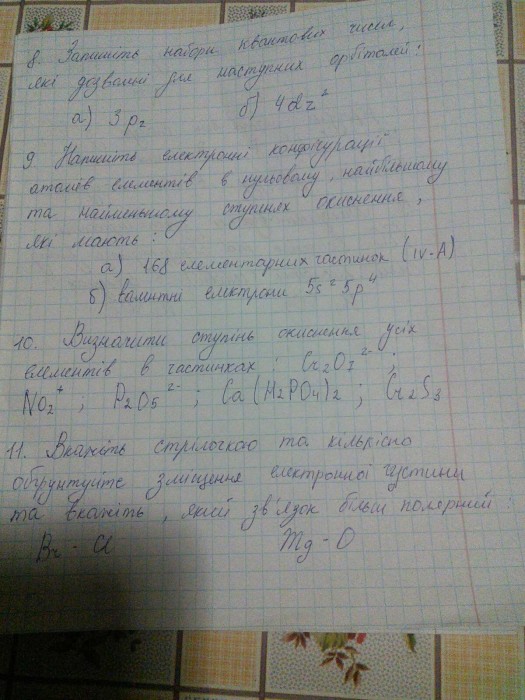 8. Запишіть набори квантових чисел,
які дозволені для наступних орбіталей:
а) 3pz б) 4dz²
9 Напишіть електронні конфігурації
атомів елементів в нульовому, найбільшому
та найменьшому ступнях окиснення,
які мають:
а) 168 елементарних частинок (IV-A)
б) валентні електрони 5s² 5p⁴
10. Визначити ступінь окиснення усіх
елементів в частинках: Cr2O7²⁻;
NO2⁺; P2O5²⁻; Ca(H2PO4)2; Cr2S3
11. Вкажіть стрілочкою та кількісно
обґрунтуйте зміщення електронної густини
та вкажіть, який зв'язок більш полярний
Br - Cl Mg - O